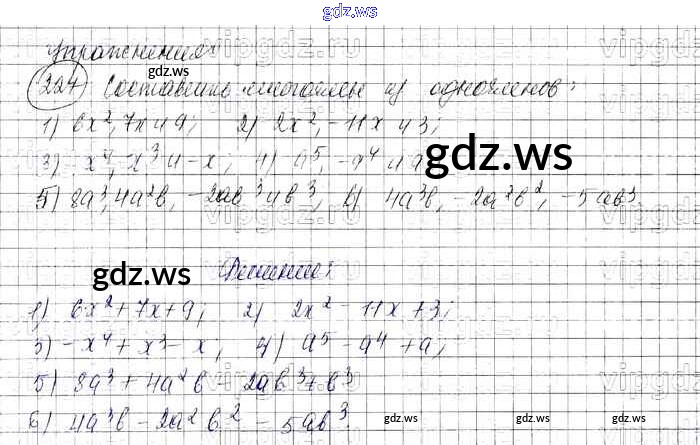 gdz.ws
Упражнения vipgdz.ru
gdz.ws
224 Составить многочлены из одночленов:
1) 6x², 7x и 9; 2) 2x², -11x и 3;
3) x⁴, x³ и -x; 4) a⁵, -a⁴ и a
gdz.ws
5) 8a³, 4a²b, -2ab³ и b³; 6) 4a³b, -2a²b², -5ab³.
gdz.ws
Решение:
1) 6x² + 7x + 9; 2) 2x² - 11x + 3;
3) -x⁴ + x³ - x; 4) a⁵ - a⁴ + a;
5) 8a³ + 4a²b - 2ab³ + b³
6) 4a³b - 2a²b² - 5ab³.
gdz.ws gdz.ws gdz.ws